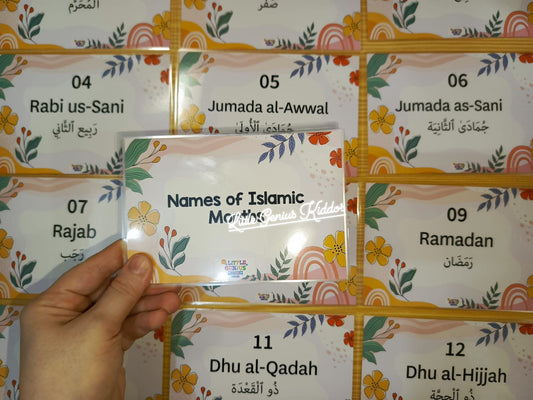 ٱلْمُحَرَّم
صَفَر
04
Rabi us-Sani
رَبِيع ٱلثَّانِي
05
Jumada al-Awwal
جُمَادَىٰ ٱلْأُولَىٰ
06
Jumada as-Sani
جُمَادَىٰ ٱلثَّانِيَة
Names of Islamic
Months
Little Genius Kiddos
LITTLE
GENIUS
07
Rajab
رَجَب
09
Ramadan
رَمَضَان
11
Dhu al-Qadah
ذُو ٱلْقَعْدَة
12
Dhu al-Hijjah
ذُو ٱلْحِجَّة